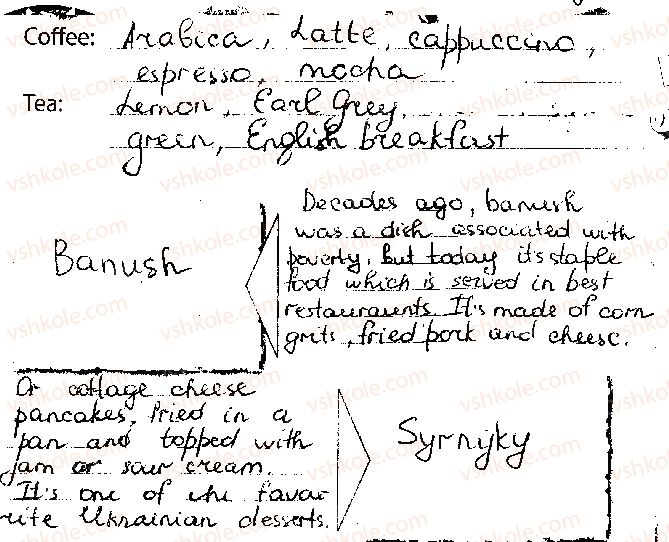 Coffee: Arabica, Latte, cappuccino,
espresso, mocha
Tea: Lemon, Earl Grey,
green, English breakfast
Banush
Decades ago, banush
was a dish associated with
poverty, but today it's staple
food which is served in best
restauraunts. It's made of corn
grits, fried pork and cheese.
Or cottage cheese
pancakes, fried in a
pan and topped with
jam or sour cream.
It's one of the favou
rite Ukrainian desserts.
Syrnyky
vshkole.com